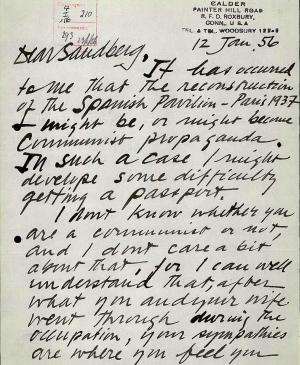 CALDER
PAINTER HILL ROAD
R. F. D. ROXBURY,
CONN., U.S.A
TEL. & TEL. WOODBURY 122-5
210
293
12 Jan. 56
Dear Sandberg,
It has occurred
to me that the reconstruction
of the Spanish Pavilion - Paris 1937
might be, or might become
Communist propaganda.
In such a case I might
develope some difficulty
getting a passport.
I dont know whether you
are a communist or not,
and I dont care a bit
about that, for I can well
understand that, after
what you and your wife
went through during the
occupation, your sympathies
are where you feel you